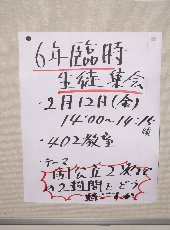 6年臨時
生徒集会
・2月12日(金)
14:00〜14:15
・402教室
・テーマ
国公立2次まで
の2週間をどう